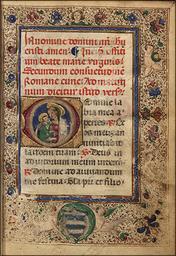 In nomine domini nri Jhu
cristi amen. officium
beate marie virginis
Secundum consuetudinem
Romane curie. Ad ma
tutinum dicitur istud vers.
Domine la
bia mea a
peries. Et os
meum an
nuntiabit
laudem tuam. Deus in
adiutorium meum intende
Domine ad adiuvandum
me festina. Gloria patri et filio